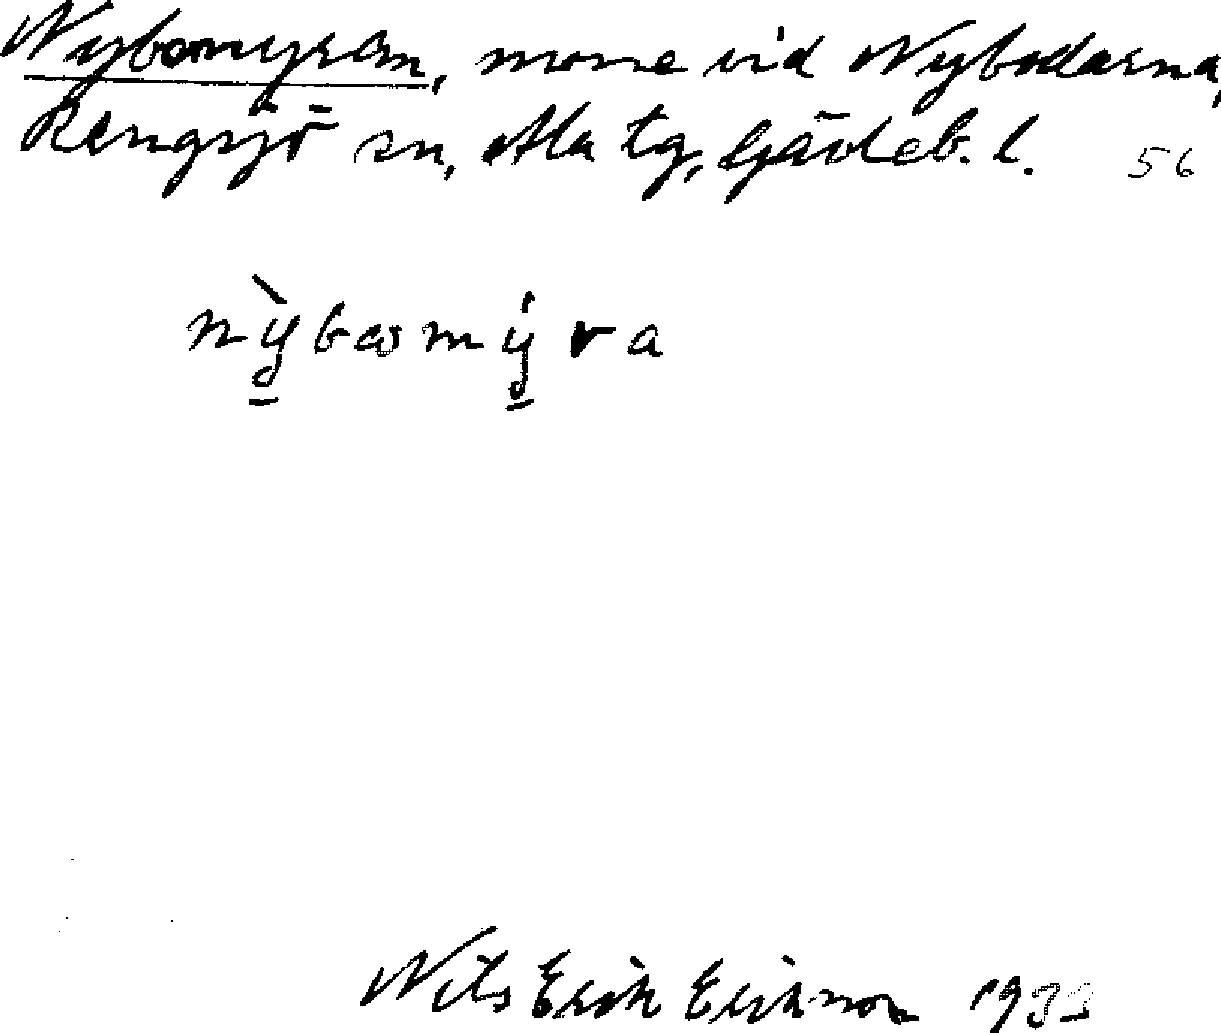 Nybomyran, mosse vid Nybodarna,
Rengsjö sn, Ala tg, Gävleb. l. 56
nỳbωmýra
Nils Erik Erikson 1933